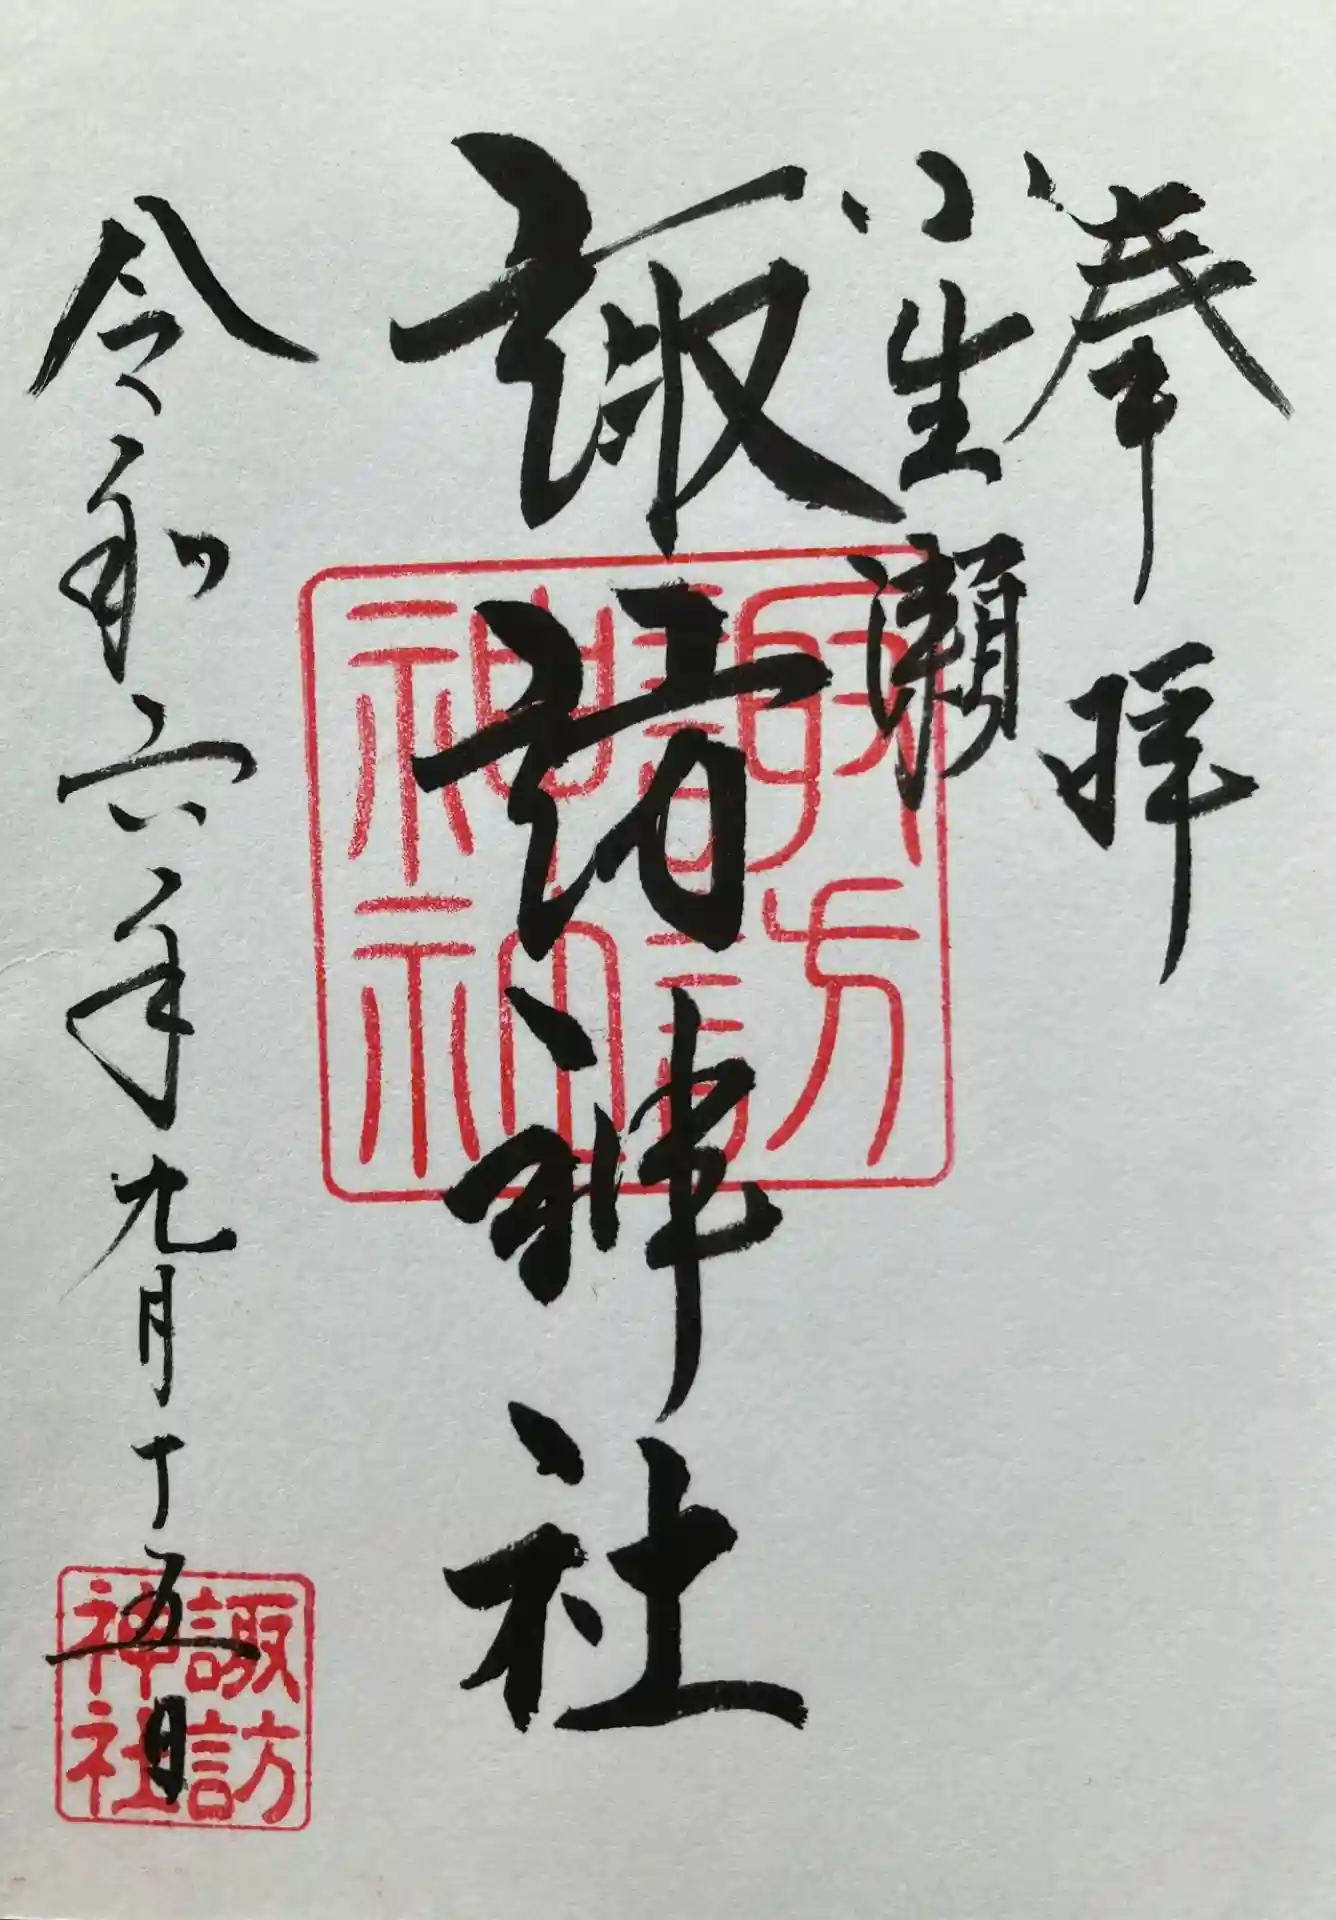 奉拝
小生瀬
諏訪神社
諏訪
神社
令和六年九月十五日
諏訪
神社